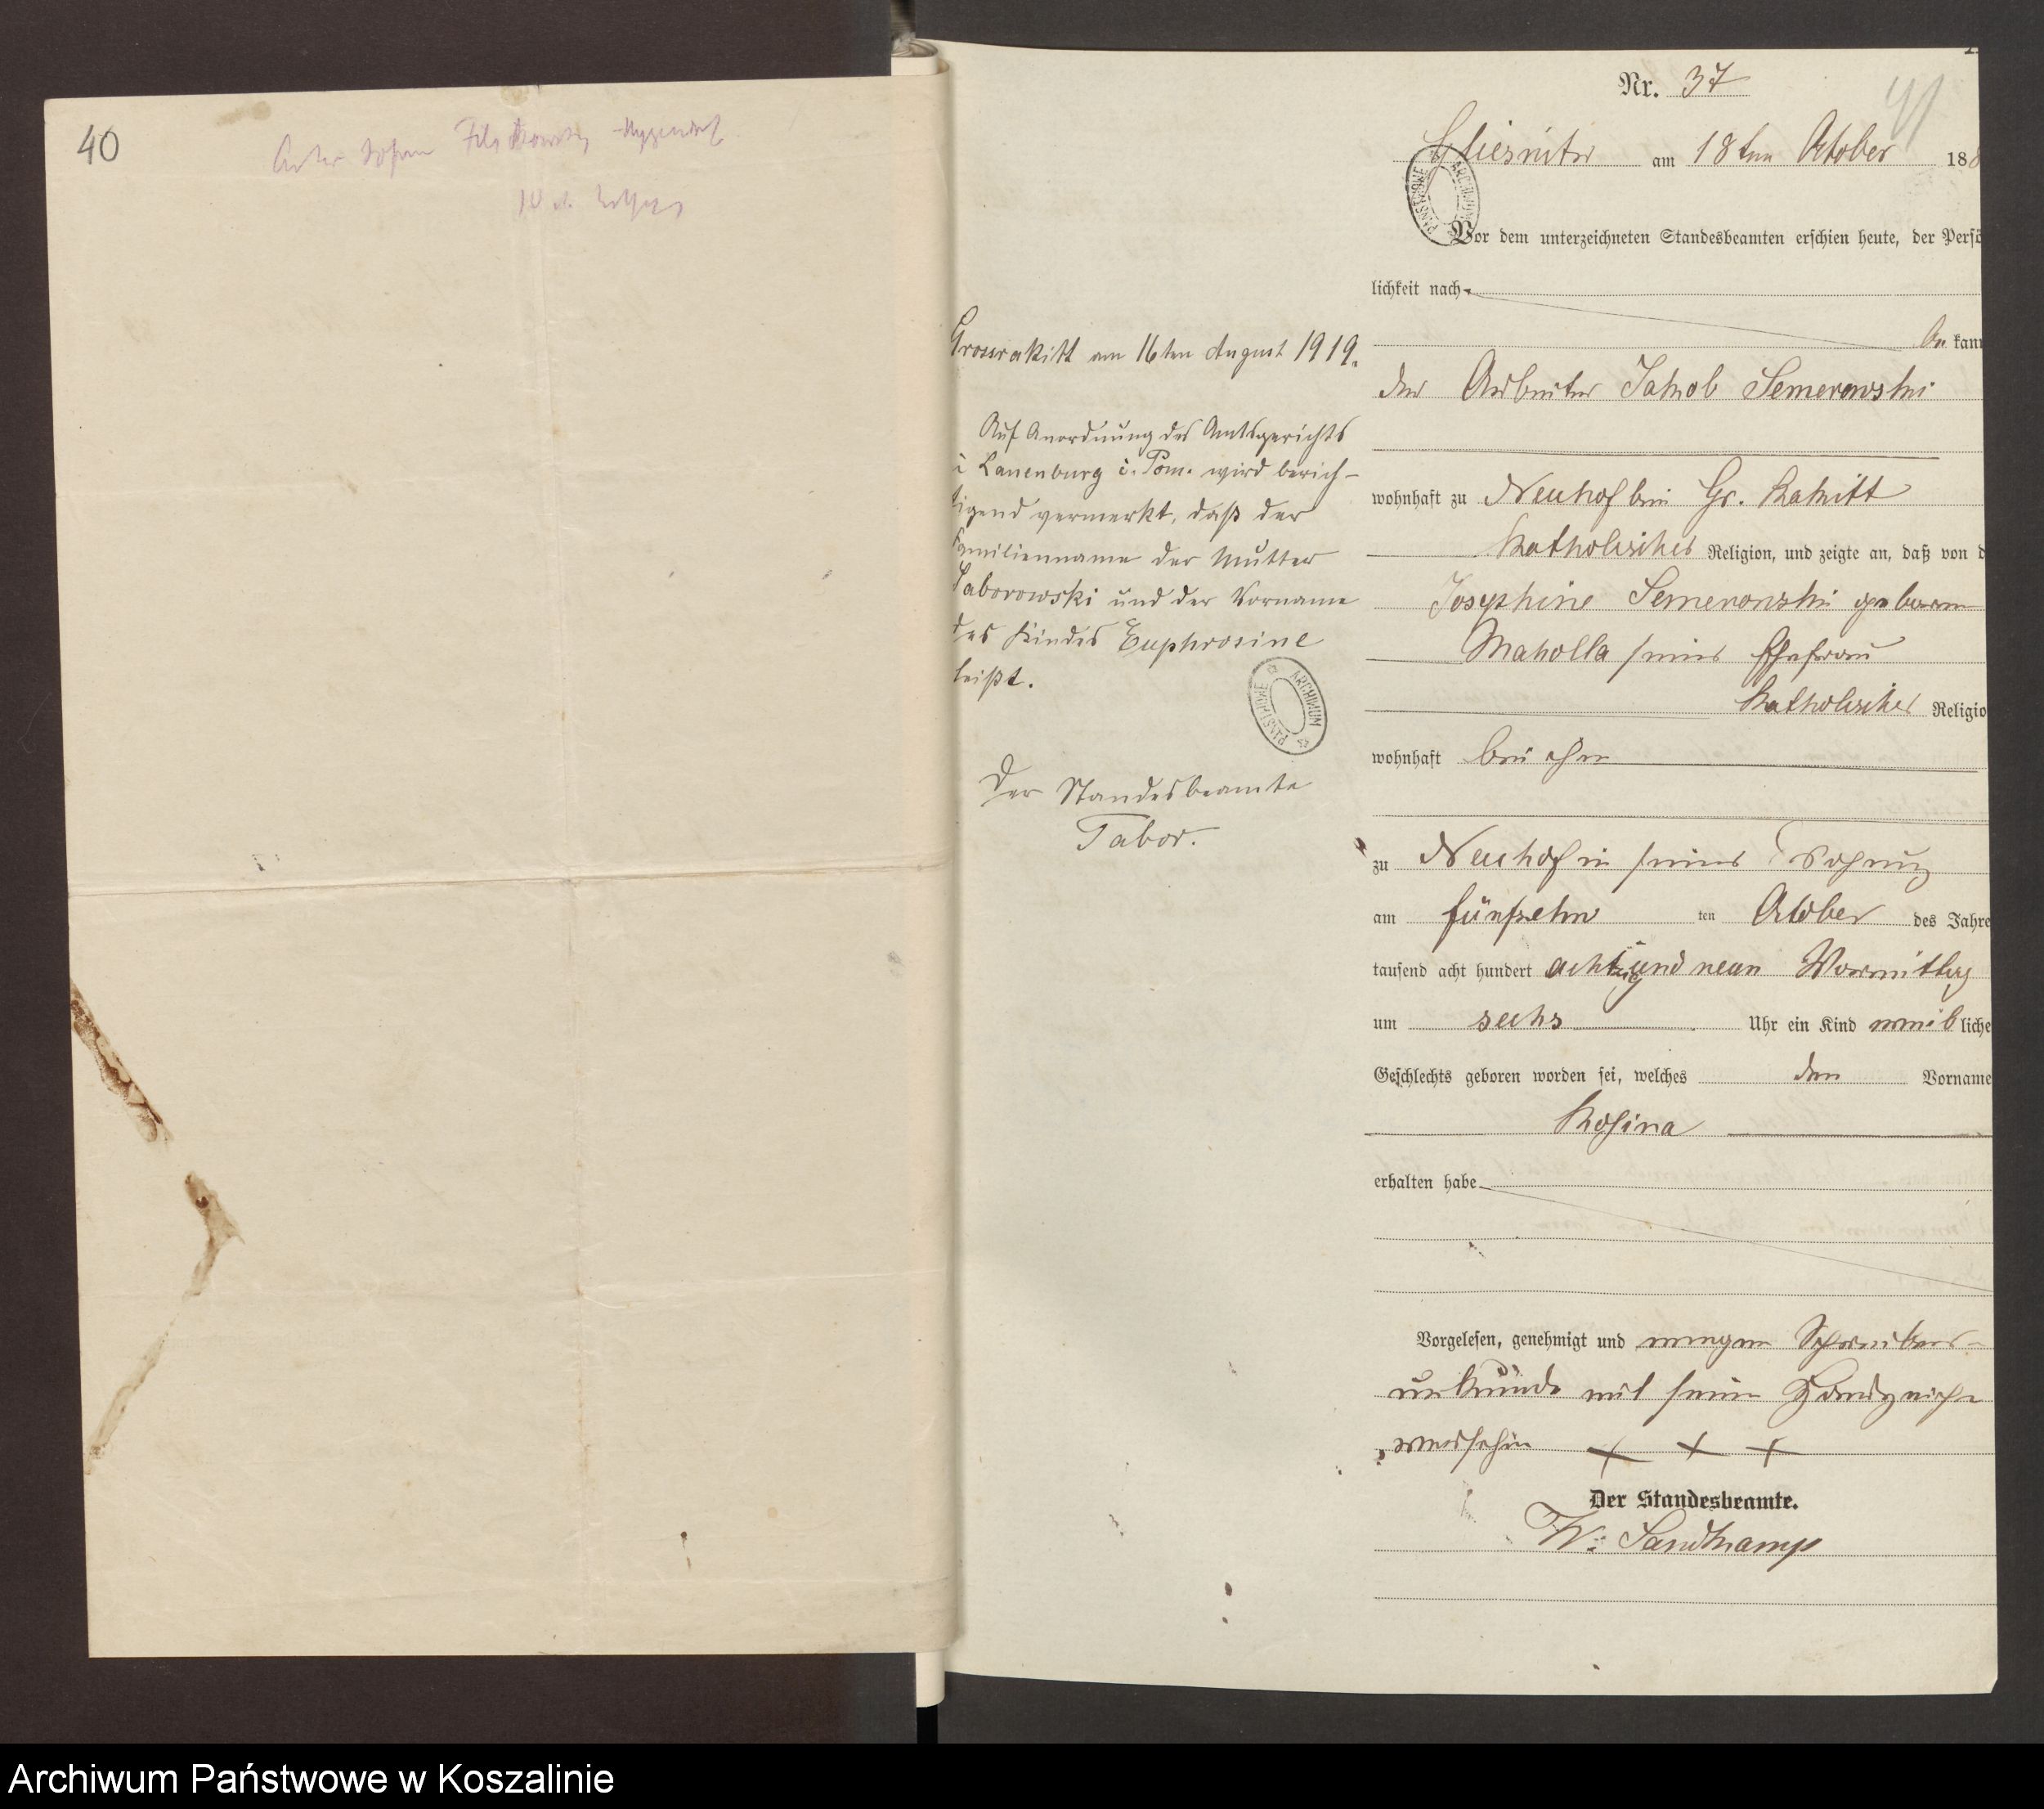 40
Nr. 37
41
am 18ten October 188
PAŃSTWOWE ARCHIWUM
Vor dem unterzeichneten Standesbeamten erschien heute, der Persö
lichkeit nach
kann
der Arbeiter Jakob Semerowski
wohnhaft zu Neuhof bei Gr. Rakitt
katholischer Religion, und zeigte an, daß von d
Josephine Semerowski geboren
Makolla seiner Ehefrau
katholischer Religio
wohnhaft bei ihm
zu Neuhof in seiner Wohnung
am fünfzehn ten October des Jahre
tausend acht hundert achtzig und neun Vormittag
um sechs Uhr ein Kind weib liche
Geschlechts geboren worden sei, welches den Vorname
Rosina
erhalten habe
Vorgelesen, genehmigt und wegen Schreibens-
unkunde mit seinem Handzeichen
versehen + + +
Der Standesbeamte.
W. Sandkamp
Grossrakitt am 16ten August 1919.
Auf Anordnung des Amtsgerichts
i Lauenburg i. Pom. wird berich-
tigend vermerkt, daß der
Familienname der Mutter
Saborowski und der Vorname
des Kindes Euphrosine
heißt.
PAŃSTWOWE ARCHIWUM
Der Standesbeamte
Tabor.
Archiwum Państwowe w Koszalinie